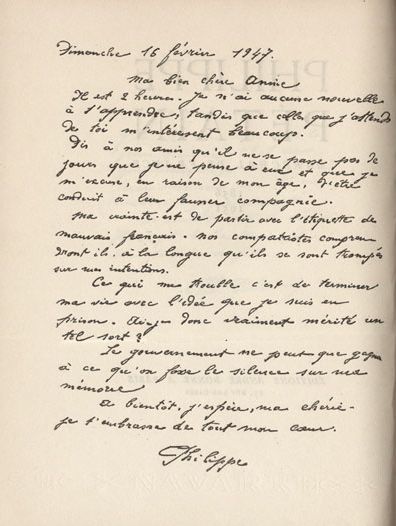 Dimanche 16 février 1947.
Ma bien chère Annie
Il est 2 heures. Je n'ai aucune nouvelle
à t'apprendre, tandis que celles que j'attends
de toi m'intéressent beaucoup.
Dis à nos amis qu'il ne se passe pas de
jours que je ne pense à eux et que je
m'excuse, en raison de mon âge, d'être
conduit à leur fausser compagnie.
Ma crainte est de partir avec l'étiquette de
mauvais français. Nos compatriotes compren
dront ils, à la longue qu'ils se sont trompés
sur mes intentions.
Ce qui me trouble c'est de terminer
ma vie avec l'idée que je suis en
prison. Ai-je donc vraiment mérité un
tel sort ?
Le gouvernement ne peut que gagner
à ce qu'on fasse le silence sur ma
mémoire
A bientôt, j'espère, ma chérie-
je t'embrasse de tout mon cœur.
Philippe